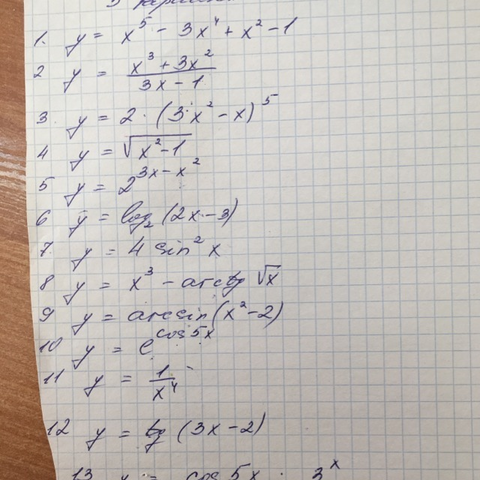 1. y = x⁵ - 3x⁴ + x² - 1
2 y = (x³ + 3x²)/(3x - 1)
3. y = 2 · (3x² - x)⁵
4 y = √(x² - 1)
5 y = 2^(3x - x²)
6 y = log₂(2x - 3)
7. y = 4 sin² x
8 y = x³ - arctg √x
9 y = arcsin(x² - 2)
10 y = e^(cos 5x)
11 y = 1/x⁴
12 y = tg (3x - 2)
13 y = cos 5x · 3ˣ